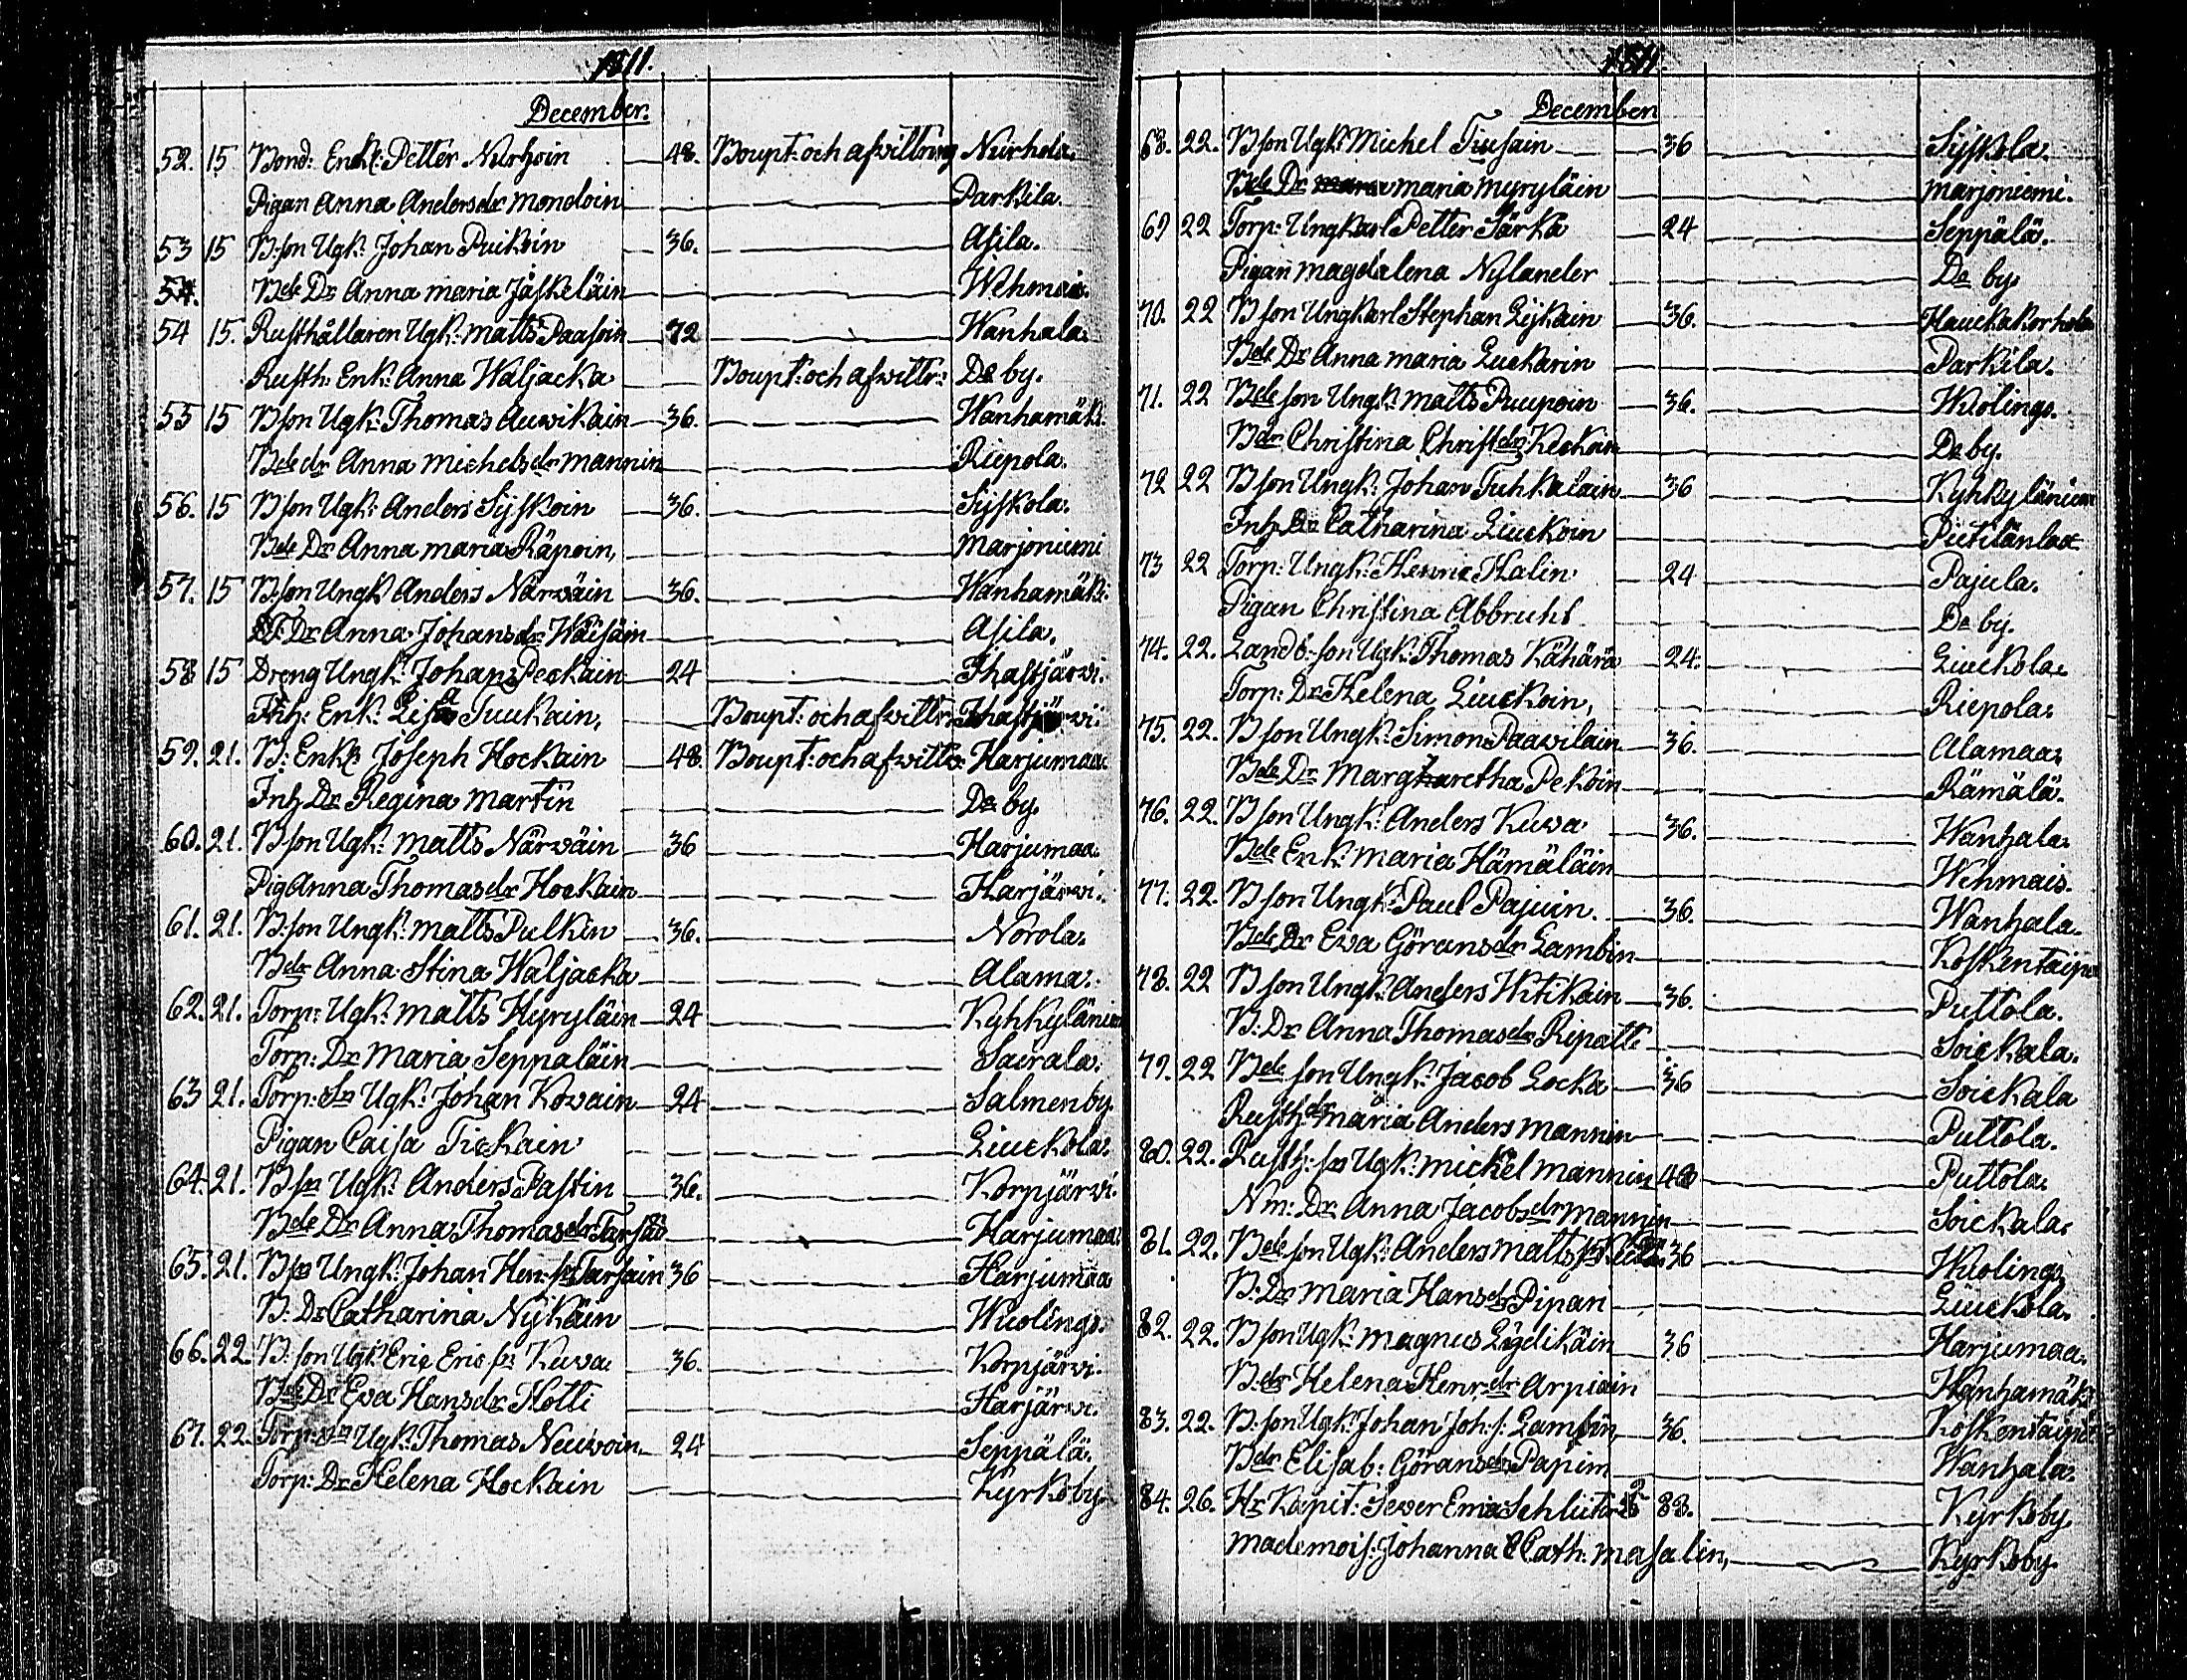 1811.
December.
52. 15 Bond: Enkl: Petter Nurhoin 48. Boupt: och afwittring Nurhola.
Pigan Anna Andersdr Mondoin Parkila.
53 15 B:son Ugk: Johan Puikoin 36. Asila.
54. Bde Dr Anna Maria Jäskeläin Wehmais.
54 15. Rusthållaren Ugk: Matts Paasoin 72 Wanhala.
Rusth: Enk: Anna Waljacka Boupt: och afwittr: De by.
55 15 Bson Ugk: Thomas Auwikain 36. Wanhamäki.
Bde dr Anna Michelsdr Mannin Riepola.
56. 15 Bson Ugk: Anders Sijskoin 36. Sijskola.
Bde Dr Anna Maria Räpoin, Marjoniemi
57. 15 B:son Ungk: Anders Närwäin 36. Wanhamäki.
Dr Anna Johansdr Waisäin Asila.
58 15 Dreng Ungk: Johan Peckain 24 Ihastjärwi.
Inh: Enk: Lisa Tuukain, Boupt: och afwittr: Ihastjärwi.
59. 21. B: Enkl Joseph Hockain 48. Boupt: och afwittr: Harjumaa
Inh Dr Regina Martin De by.
60. 21. Bson Ugk: Matts Närwäin 36 Harjumaa.
Pig Anna Thomasdr Hockain Harjärwi.
61. 21. B:son Ungk: Matts Pulkin 36. Norola.
Bdr Anna Stina Waljacka Alama.
62. 21. Torp: Ugk: Matts Hyryläin 24 Kyhkylänium
Torp: Dr Maria Seppäläin Sairala.
63 21. Torp: Sn Ugk: Johan Kowain 24 Salmenby.
Pigan Caisa Tickain Liuckola.
64. 21. Bsn Ugk: Anders Pastin 36. Korpjärwi.
Bde Dr Anna Thomasdr Harjumaa
65. 21. Bsn Ungk: Johan Hen: sn Tarsain 36 Harjumaa
B: Dr Catharina Nijkäin Wuolings.
66. 22. B: son Ugk: Eric Eric sn Kuwa 36. Korpjärwi.
Bde Dr Ewa Hansdr Hotti Harjärwi.
67. 22. Torp: sn Ugk: Thomas Neuwoin 24 Seppälä.
Torp: Dr Helena Hockain Kyrkoby.
1811.
December
68. 22. Bson Ugk: Michel Tiusain 36 Sijskola.
Bde Dr Maria Myryläin Marjoniemi.
69 22 Torp: Ungkarl Petter Särkä 24 Seppälä.
Pigan Magdalena Nylander De by.
70. 22 Bson Ungkarl Stephan Lijkain 36. Hauckakorhola
Bde Dr Anna Maria Luckarin Parkila.
71. 22 Bde son Ungk: Matts Puupoin 36. Wuolings.
Bdr Christina Christdr Keckoin De by.
72 22 Bson Ungk: Johan Tuhkalain 36 Kyhkylänium
Inh Dr Catharina Liuckoin Putilänlax
73 22 Torp: Ungk: Henric Halin 24 Pajula.
Pigan Christina Abbruht De by.
74. 22. Landb: son Ugk: Thomas Kähärä 24. Liuckola
Torp: Dr Helena Liuckoin, Riepola.
75. 22. Bson Ungk: Simon Paawilain 36. Alamaa.
Bde Dr Margharetha Pekoin Rämälä.
76. 22. Bson Ungk: Anders Kuwa 36. Wanhala.
Bde Enk: Maria Hämäläin Wehmais.
77. 22. Bson Ungk: Paul Pajuin. 36. Wanhala.
Bde Dr Ewa Göransdr Lambin Koskentaipal
78. 22 Bson Ungk: Anders Witikain 36. Puttola.
B: Dr Anna Thomasdr Ripatti Soickala.
79. 22 Bde son Ungk: Jacob Locka 36 Soickala
Rusth: dr Maria Anders Mannin Puttola.
80. 22. Rusth: sn Ugk: Mickel Mannin 48 Puttola.
Nm: Dr Anna Jacobsdr Mannin Soickala.
81. 22. Bde son Ugk: Anders Matts sn 36 Wuolings
B: Dr Maria Hansdr Pipan Liuckola.
82. 22. Bson Ugk: Magnus Lydikäin 36 Harjumaa.
B: dr Helena Henr: dr Arpiain Wanhamäki
83. 22. B: son Ugk: Johan Joh: s: Lambin 36. Koskentaipal
Bdr Elisab: Göransdr Pajuin Wanhala.
84. 26. Hr Kapit: Sever Schlüter 88. Kyrkoby.
Mademois: Johanna Cath: Masalin, Kyrkoby.